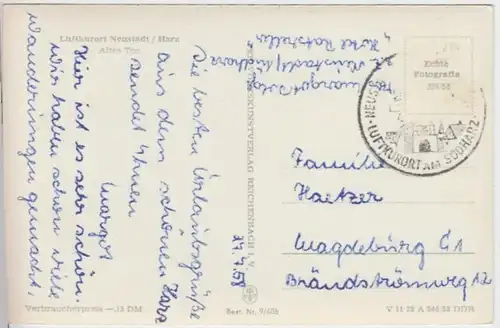 Luftkurort Neustadt / Harz
Altes Tor
Die besten Urlaubsgrüße
aus dem schönen Harz
sendet Ihnen
Margot
Hier ist es sehr schön.
Wir haben schon viele
Wanderungen gemacht.
27.7.58
Neustadt/Südharz
"Hotel Ratskeller"
BILD UND HEIMAT
KUNSTVERLAG REICHENBACH i. V.
Echte
Fotografie
NEUS
LUFTKURORT AM SÜDHARZ
Familie
Haetzer
Magdeburg C1
Brandströmweg 12
Verbraucherpreis —.15 DM
Best. Nr. 9/608
V 11 28 A 546/58 DDR